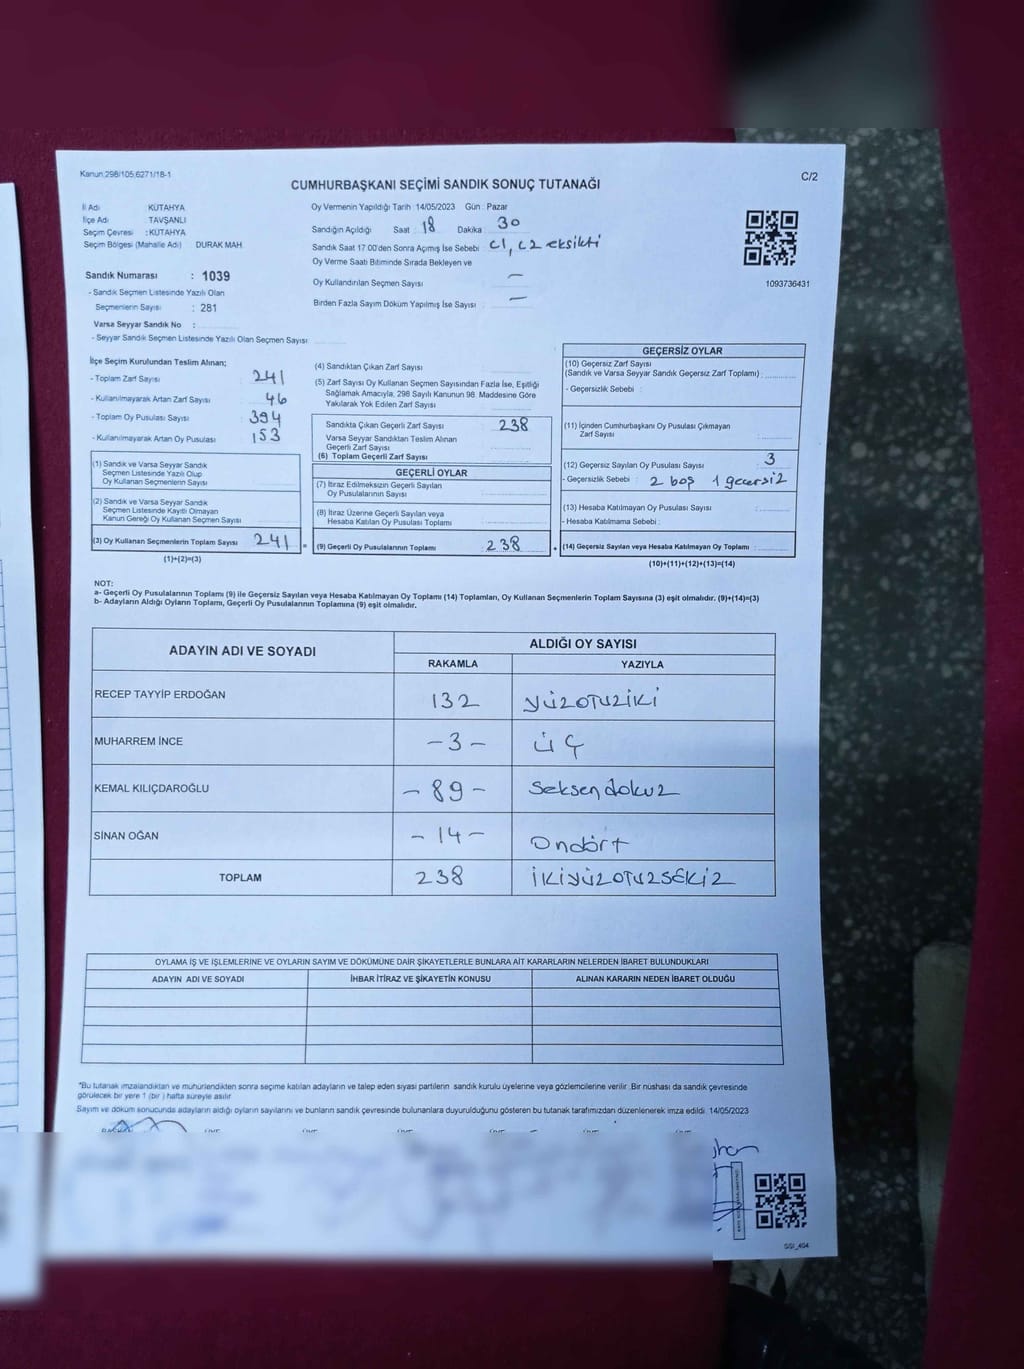 Kanun:298/105,6271/18-1
C/2
CUMHURBAŞKANI SEÇİMİ SANDIK SONUÇ TUTANAĞI
İl Adı : KÜTAHYA
İlçe Adı : TAVŞANLI
Seçim Çevresi : KÜTAHYA
Seçim Bölgesi (Mahalle Adı) DURAK MAH.
Sandık Numarası : 1039
- Sandık Seçmen Listesinde Yazılı Olan
Seçmenlerin Sayısı : 281
Varsa Seyyar Sandık No :
- Seyyar Sandık Seçmen Listesinde Yazılı Olan Seçmen Sayısı :
Oy Vermenin Yapıldığı Tarih :14/05/2023 Gün : Pazar
Sandığın Açıldığı Saat : 18 Dakika : 30
Sandık Saat 17:00'den Sonra Açımış İse Sebebi : C1, C2 eksikti
Oy Verme Saati Bitiminde Sırada Bekleyen ve
Oy Kullandırılan Seçmen Sayısı : —
Birden Fazla Sayım Döküm Yapılmış İse Sayısı : —
1093736431
İlçe Seçim Kurulundan Teslim Alınan;
- Toplam Zarf Sayısı : 241
- Kullanılmayarak Artan Zarf Sayısı : 46
- Toplam Oy Pusulası Sayısı : 394
- Kullanılmayarak Artan Oy Pusulası : 153
(1) Sandık ve Varsa Seyyar Sandık
Seçmen Listesinde Yazılı Olup
Oy Kullanan Seçmenlerin Sayısı
(2) Sandık ve Varsa Seyyar Sandık
Seçmen Listesinde Kayıtlı Olmayan
Kanun Gereği Oy Kullanan Seçmen Sayısı
(3) Oy Kullanan Seçmenlerin Toplam Sayısı 241
(1)+(2)=(3)
(4) Sandıktan Çıkan Zarf Sayısı :
(5) Zarf Sayısı Oy Kullanan Seçmen Sayısından Fazla İse, Eşitliği
Sağlamak Amacıyla, 298 Sayılı Kanunun 98. Maddesine Göre
Yakılarak Yok Edilen Zarf Sayısı :
Sandıkta Çıkan Geçerli Zarf Sayısı : 238
Varsa Seyyar Sandıktan Teslim Alınan
Geçerli Zarf Sayısı :
(6) Toplam Geçerli Zarf Sayısı :
GEÇERLİ OYLAR
(7) İtiraz Edilmeksizin Geçerli Sayılan
Oy Pusulalarının Sayısı :
(8) İtiraz Üzerine Geçerli Sayılan veya
Hesaba Katılan Oy Pusulası Toplamı :
= (9) Geçerli Oy Pusulalarının Toplamı : 238
GEÇERSİZ OYLAR
(10) Geçersiz Zarf Sayısı
(Sandık ve Varsa Seyyar Sandık Geçersiz Zarf Toplamı) :
- Geçersizlik Sebebi :
(11) İçinden Cumhurbaşkanı Oy Pusulası Çıkmayan
Zarf Sayısı :
(12) Geçersiz Sayılan Oy Pusulası Sayısı : 3
- Geçersizlik Sebebi : 2 boş 1 geçersiz
(13) Hesaba Katılmayan Oy Pusulası Sayısı :
- Hesaba Katılmama Sebebi :
+ (14) Geçersiz Sayılan veya Hesaba Katılmayan Oy Toplamı :
(10)+(11)+(12)+(13)=(14)
NOT:
a- Geçerli Oy Pusulalarının Toplamı (9) ile Geçersiz Sayılan veya Hesaba Katılmayan Oy Toplamı (14) Toplamları, Oy Kullanan Seçmenlerin Toplam Sayısına (3) eşit olmalıdır. (9)+(14)=(3)
b- Adayların Aldığı Oyların Toplamı, Geçerli Oy Pusulalarının Toplamına (9) eşit olmalıdır.
ADAYIN ADI VE SOYADI ALDIĞI OY SAYISI
RAKAMLA YAZIYLA
RECEP TAYYİP ERDOĞAN 132 YÜZOTUZİKİ
MUHARREM İNCE -3- ÜÇ
KEMAL KILIÇDAROĞLU -89- Seksendokuz
SİNAN OĞAN -14- Ondört
TOPLAM 238 İKİYÜZOTUZSEKİZ
OYLAMA İŞ VE İŞLEMLERİNE VE OYLARIN SAYIM VE DÖKÜMÜNE DAİR ŞİKAYETLERLE BUNLARA AİT KARARLARIN NELERDEN İBARET BULUNDUKLARI
ADAYIN ADI VE SOYADI İHBAR İTİRAZ VE ŞİKAYETİN KONUSU ALINAN KARARIN NEDEN İBARET OLDUĞU
*Bu tutanak imzalandıktan ve mühürlendikten sonra seçime katılan adayların ve talep eden siyasi partilerin sandık kurulu üyelerine veya gözlemcilerine verilir. Bir nüshası da sandık çevresinde
görülecek bir yere 1 (bir ) hafta süreyle asılır.
Sayım ve döküm sonucunda adayların aldığı oyların sayılarını ve bunların sandık çevresinde bulunanlara duyurulduğunu gösteren bu tutanak tarafımızdan düzenlenerek imza edildi. 14/05/2023